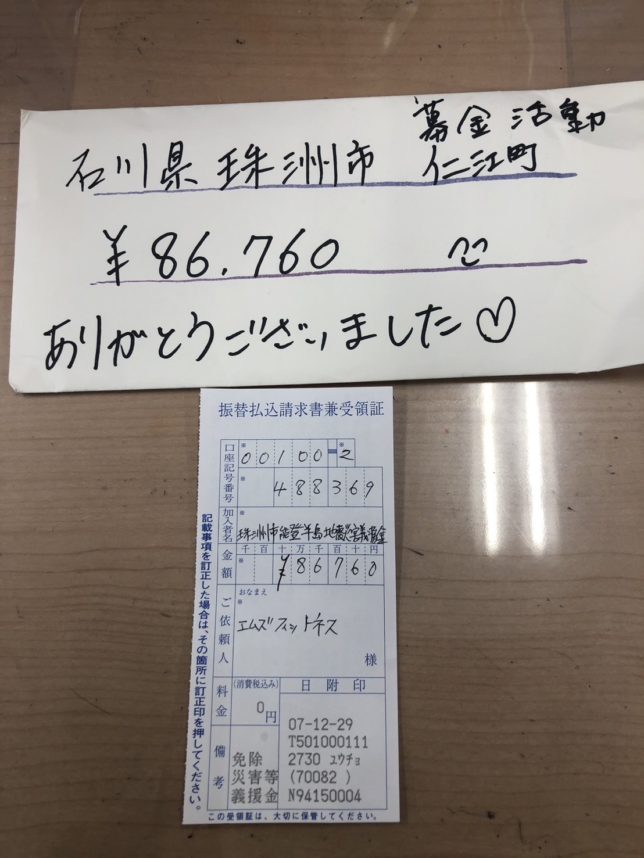 募金活動
石川県 珠洲市 仁江町
¥86.760
ありがとうございました♡
振替払込請求書兼受領証
口座記号番号
※ 00100=※2
※ 488369
加入者名
※ 珠洲市能登半島地震災害義援金
金額
千百十万千百十円
※ ¥86760
ご依頼人
おなまえ
※
エムズフィットネス
様
料金
(消費税込み)
0円
日附印
07-12-29
T501000111
2730 ユウチョ
(70082 )
N94150004
備考
免除
災害等
義援金
記載事項を訂正した場合は、その箇所に訂正印を押してください。
この受領証は、大切に保管してください。